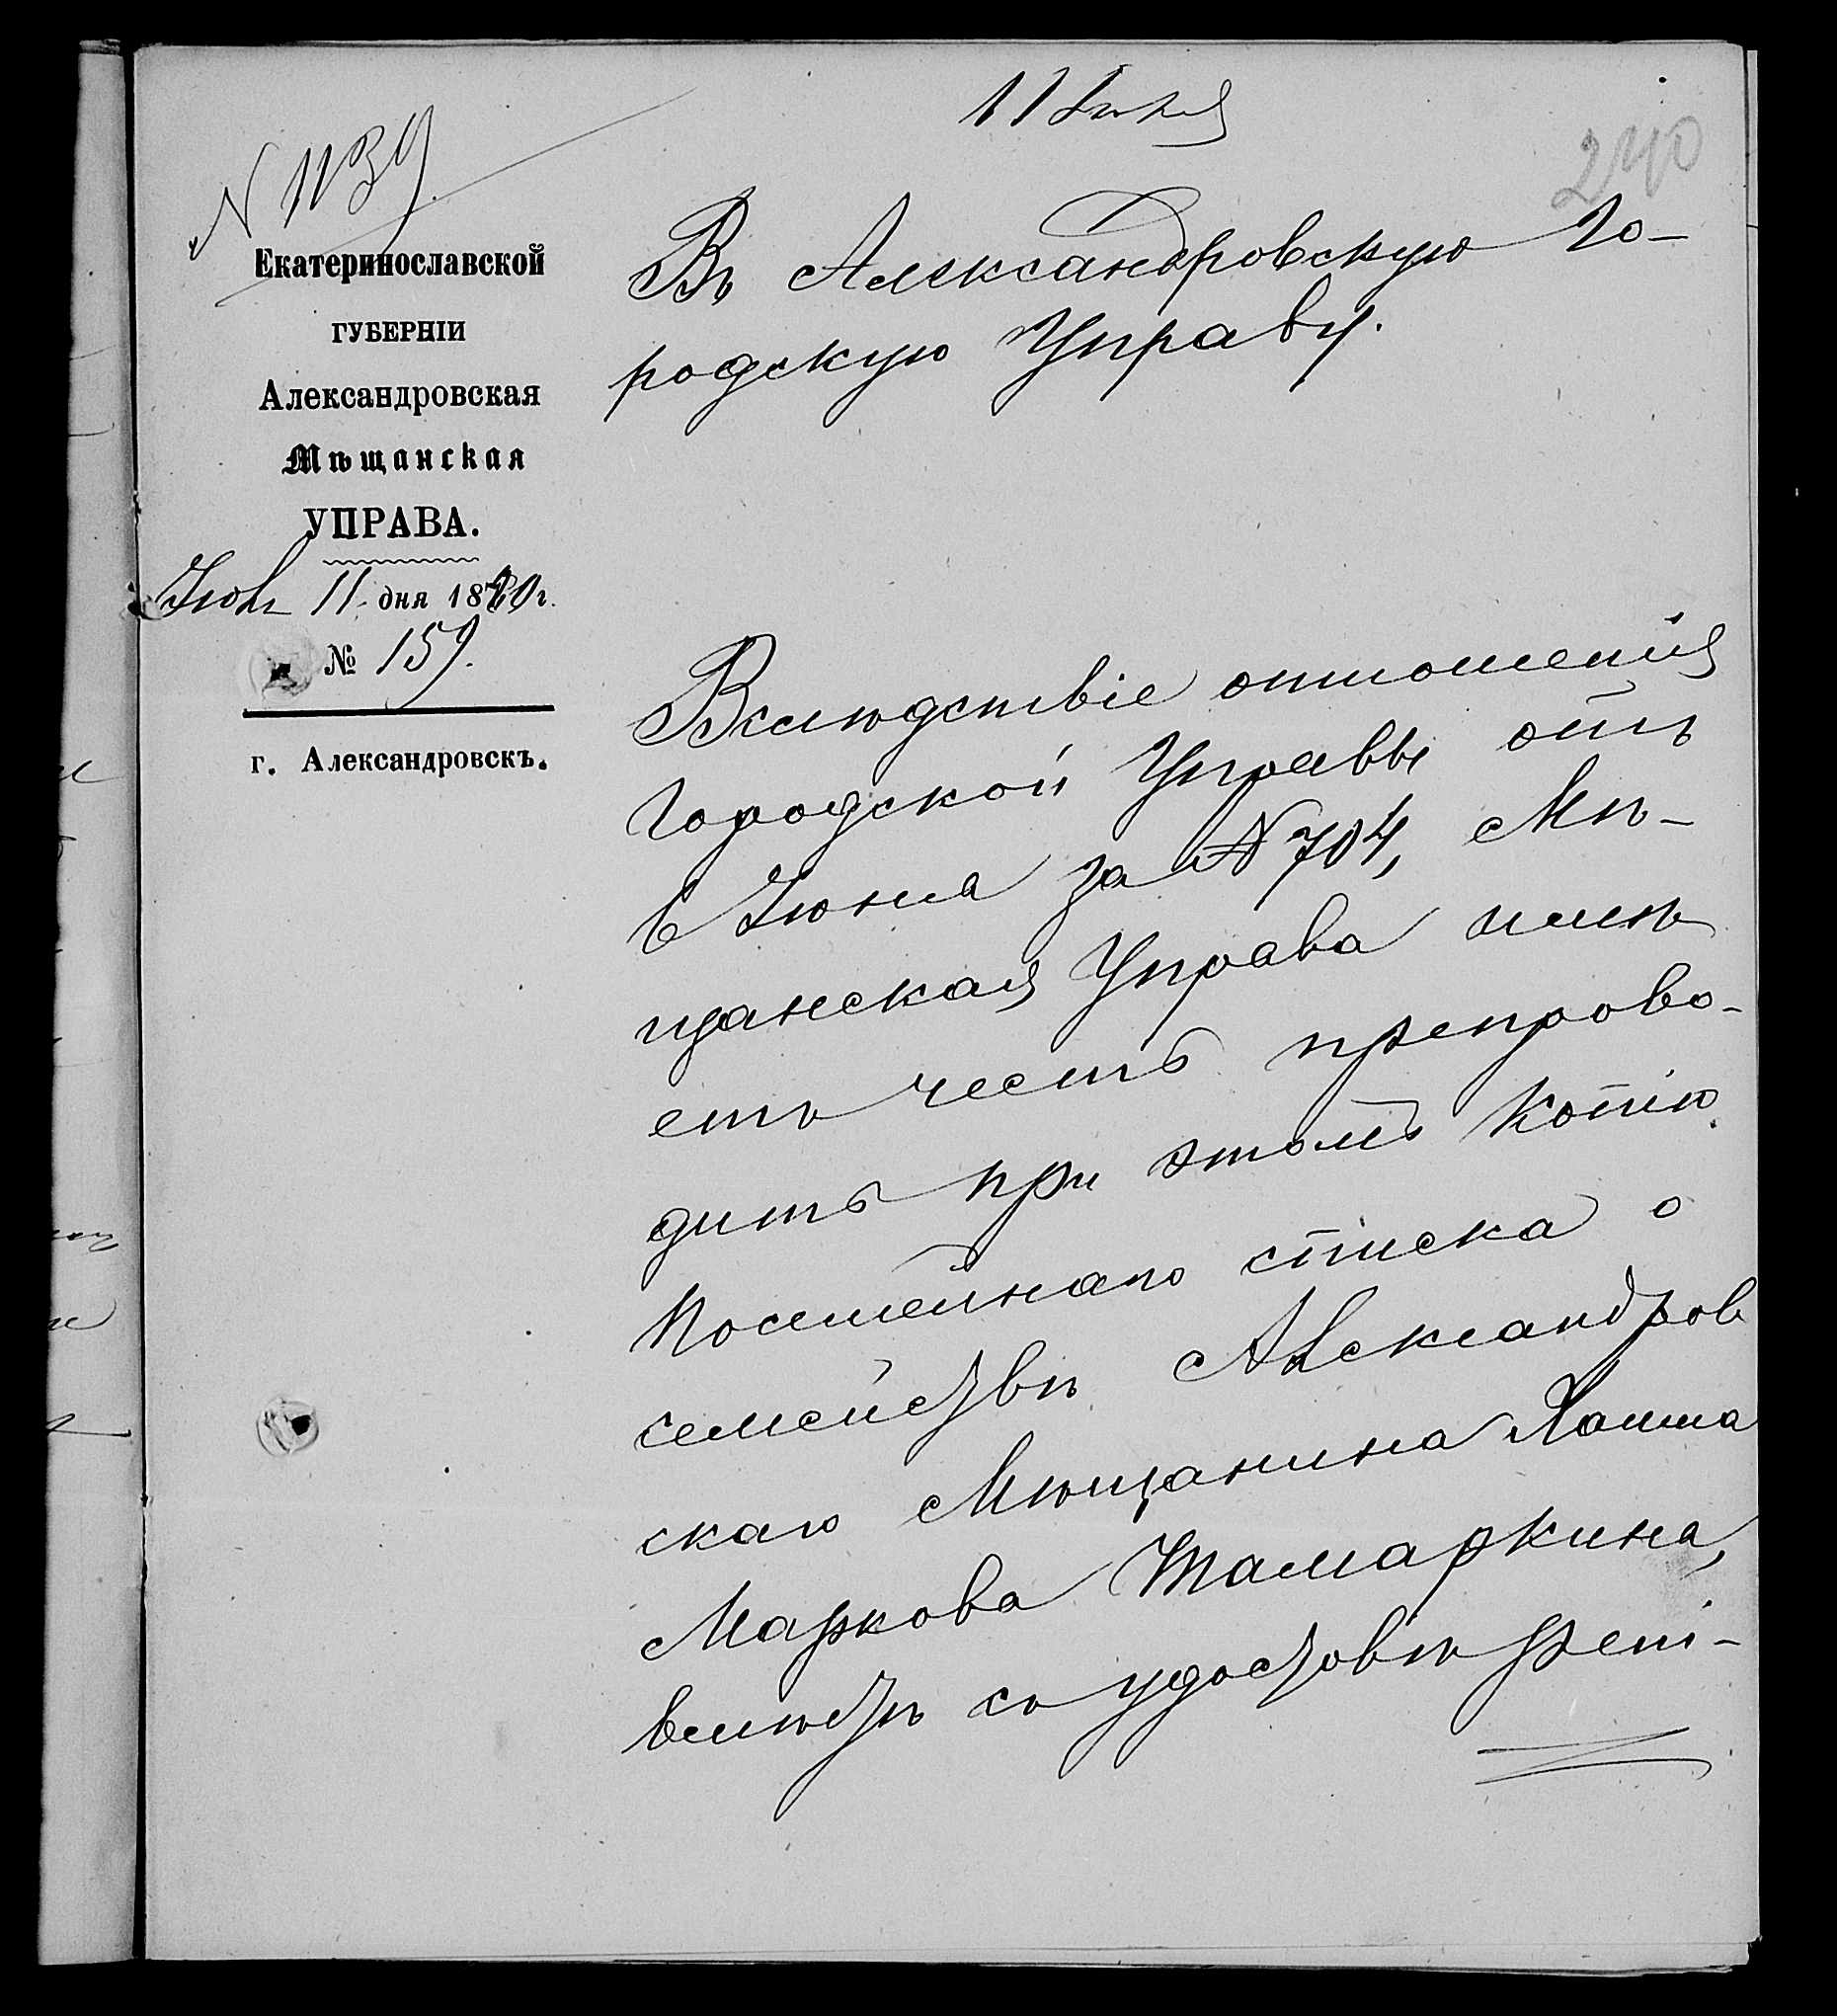 11 Іюня
240
N 1139
Екатеринославской
ГУБЕРНІИ
Александровская
Мѣщанская
УПРАВА.
Іюня 11 дня 1880 г.
№ 159.
г. Александровскъ.
Въ Александровскую Го-
родскую Управу.
Вслѣдствіе отношенія
Городской Управы отъ
6 Іюня за N 704, Мѣ-
щанская Управа имѣ
етъ честь препрово-
дить при этомъ копію
посемейнаго списка о
семействѣ Александров
скаго Мѣщанина Хаима
Маркова Тамаркина,
вмѣстѣ со удостовѣрені-